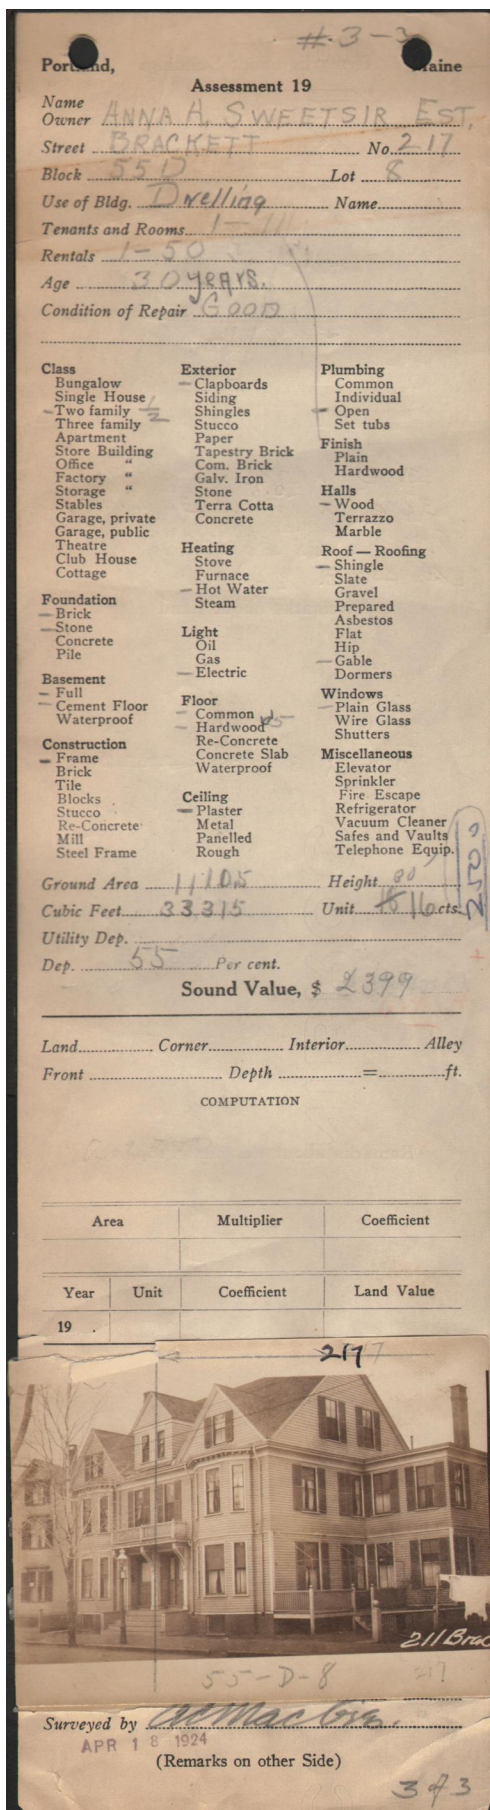 #3-3
Portland, Maine
Assessment 19
Name
Owner ANNA A. SWEETSIR EST.
Street BRACKETT No. 217
Block 55D Lot 8
Use of Bldg. Dwelling Name
Tenants and Rooms 1-11
Rentals 1-50
Age 30 years.
Condition of Repair GOOD
Class
Bungalow
Single House
Two family 1/2
Three family
Apartment
Store Building
Office "
Factory "
Storage "
Stables
Garage, private
Garage, public
Theatre
Club House
Cottage
Foundation
Brick
Stone
Concrete
Pile
Basement
Full
Cement Floor
Waterproof
Construction
Frame
Brick
Tile
Blocks
Stucco
Re-Concrete
Mill
Steel Frame
Exterior
Clapboards
Siding
Shingles
Stucco
Paper
Tapestry Brick
Com. Brick
Galv. Iron
Stone
Terra Cotta
Concrete
Heating
Stove
Furnace
Hot Water
Steam
Light
Oil
Gas
Electric
Floor
Common
Hardwood
Re-Concrete
Concrete Slab
Waterproof
Ceiling
Plaster
Metal
Panelled
Rough
Plumbing
Common
Individual
Open
Set tubs
Finish
Plain
Hardwood
Halls
Wood
Terrazzo
Marble
Roof — Roofing
Shingle
Slate
Gravel
Prepared
Asbestos
Flat
Hip
Gable
Dormers
Windows
Plain Glass
Wire Glass
Shutters
Miscellaneous
Elevator
Sprinkler
Fire Escape
Refrigerator
Vacuum Cleaner
Safes and Vaults
Telephone Equip.
2500
Ground Area Height
Cubic Feet 33315 Unit 16 cts.
Utility Dep.
Dep. 55 Per cent.
Sound Value, $ 2399
Land Corner Interior Alley
Front Depth = ft.
COMPUTATION
Area Multiplier Coefficient
Year Unit Coefficient Land Value
19 .
217
211 Brac
55-D-8 217
Surveyed by
APR 18 1924
(Remarks on other Side)
3 of 3